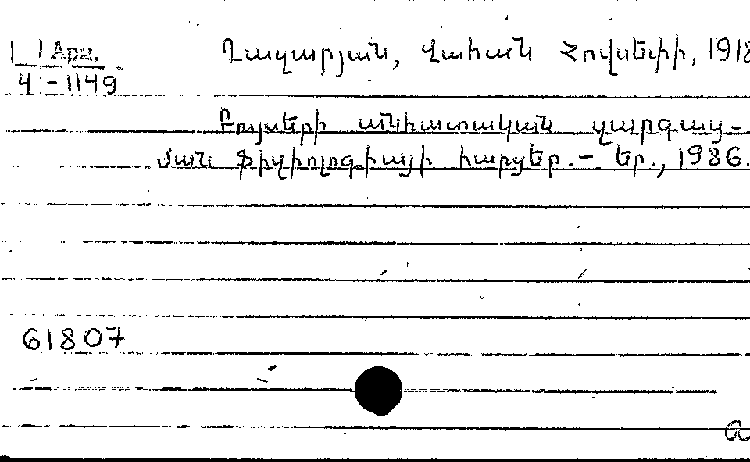 Արխ.
4-1149
Ղազարյան, Վահան Հովսեփի, 1918
Բույսերի անհատական զարգաց-
ման ֆիզիոլոգիայի հարցեր.- Եր., 1986.
61807